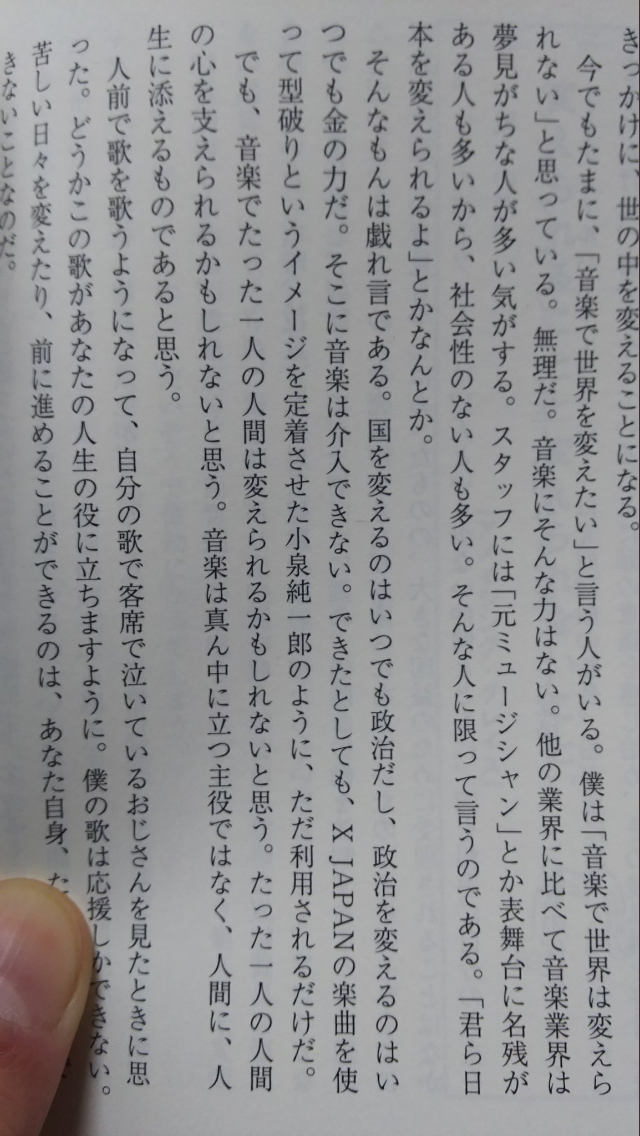 きっかけに、世の中を変えることになる。
今でもたまに、「音楽で世界を変えたい」と言う人がいる。僕は「音楽で世界は変えら
れない」と思っている。無理だ。音楽にそんな力はない。他の業界に比べて音楽業界は
夢見がちな人が多い気がする。スタッフには「元ミュージシャン」とか表舞台に名残が
ある人も多いから、社会性のない人も多い。そんな人に限って言うのである。「君ら日
本を変えられるよ」とかなんとか。
そんなもんは戯れ言である。国を変えるのはいつでも政治だし、政治を変えるのはい
つでも金の力だ。そこに音楽は介入できない。できたとしても、X JAPANの楽曲を使
って型破りというイメージを定着させた小泉純一郎のように、ただ利用されるだけだ。
でも、音楽でたった一人の人間は変えられるかもしれないと思う。たった一人の人間
の心を支えられるかもしれないと思う。音楽は真ん中に立つ主役ではなく、人間に、人
生に添えるものであると思う。
人前で歌を歌うようになって、自分の歌で客席で泣いているおじさんを見たときに思
った。どうかこの歌があなたの人生の役に立ちますように。僕の歌は応援しかできない。
苦しい日々を変えたり、前に進めることができるのは、あなた自身、た
きないことなのだ。